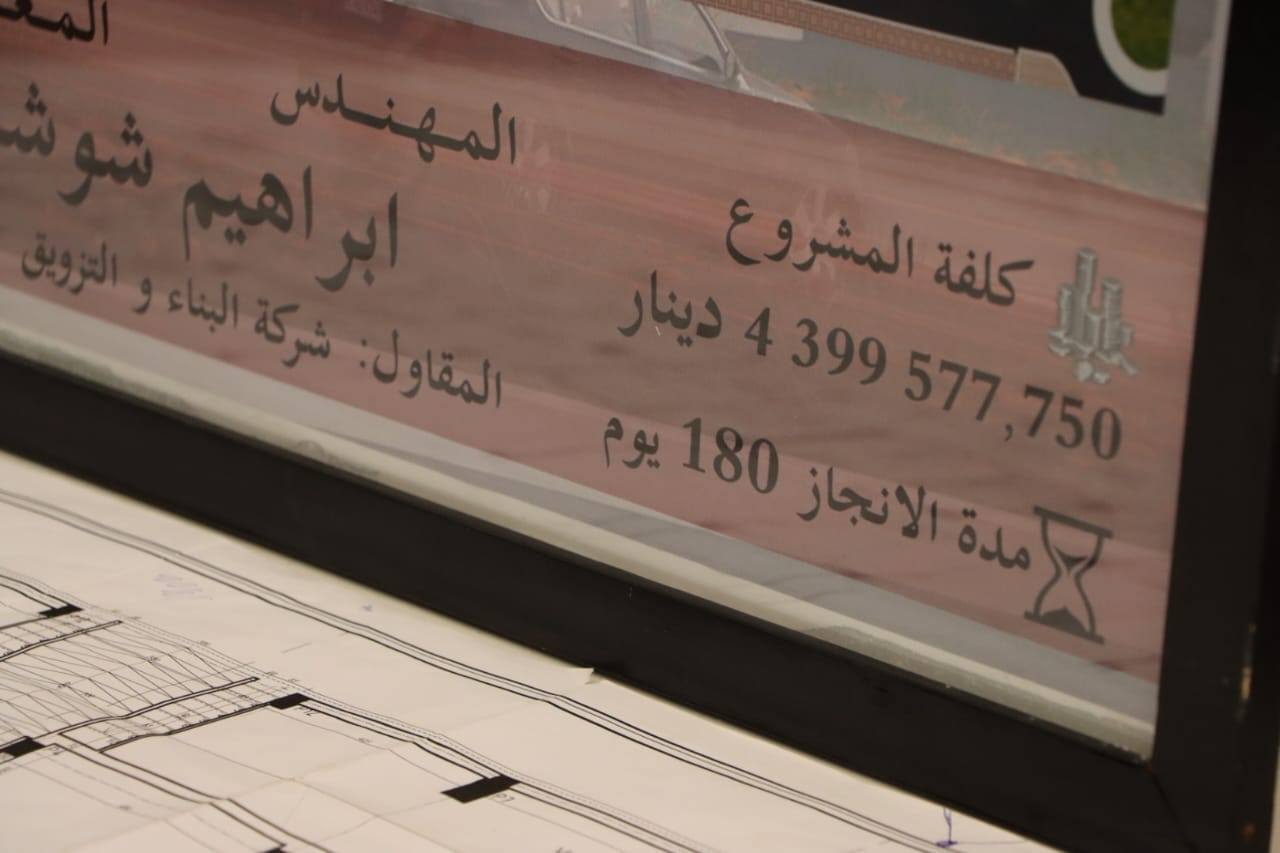 كلفة المشروع
4 399 577,750 دينار
مدة الانجاز 180 يوم
المهندس
ابراهيم
المقاول: شركة البناء و التزويق